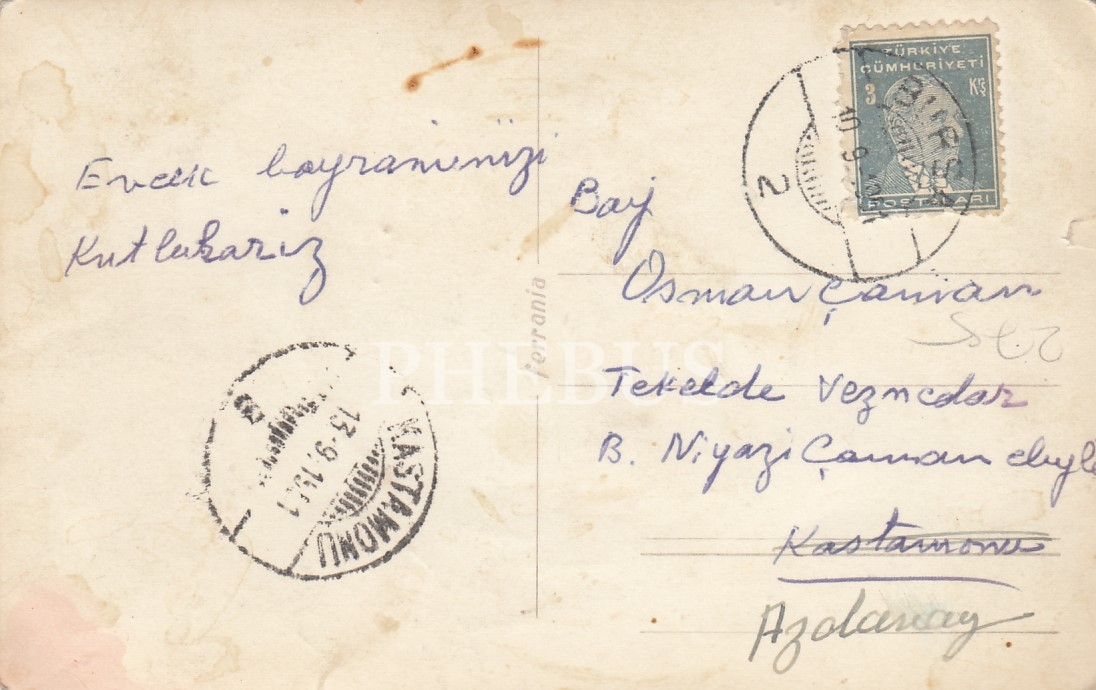 Evcek bayramınızı
Kutlukarız
Bay
Osman Çaman
Tekelde Veznedar
B. Niyazi Çaman eliyle
Kastamonu
Azdavay
TÜRKİYE
CÜMHURİYETİ
3 Krş
POSTALARI
BURSA
2
KASTAMONU
13-9-19
8
Ferrania
PHEBUS